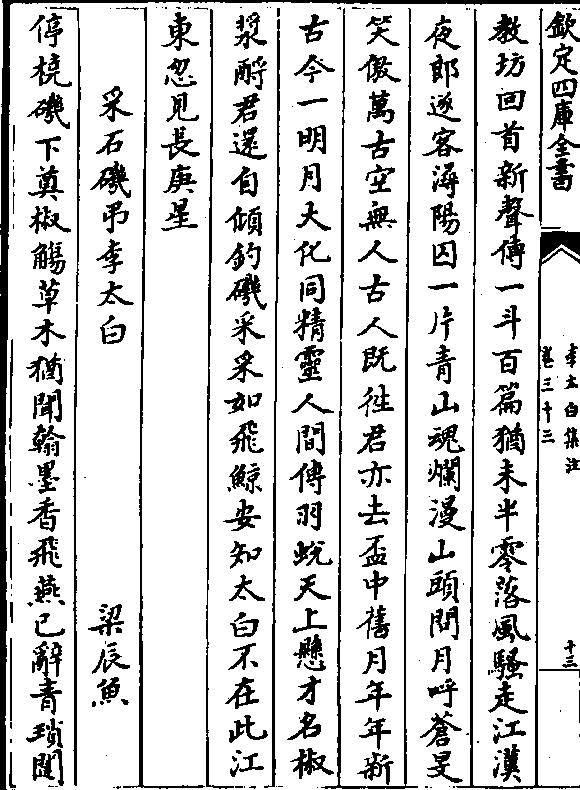 欽定四庫全書
李太白集注
卷三十三
十三
教坊回首新聲傳一斗百篇猶未半零落風騷走江漢
夜郎逐客潯陽囚一片青山魂爛漫山頭問月呼蒼旻
笑傲萬古空無人古人既徃君亦去盃中舊月年年新
古今一明月大化同精靈人間傳羽蛻天上懸才名椒
漿酹君還自傾釣磯采采如飛鯨安知太白不在此江
東忽見長庚星
采石磯弔李太白
梁辰魚
停橈磯下奠椒觴草木猶聞翰墨香飛燕已辭青瑣闥